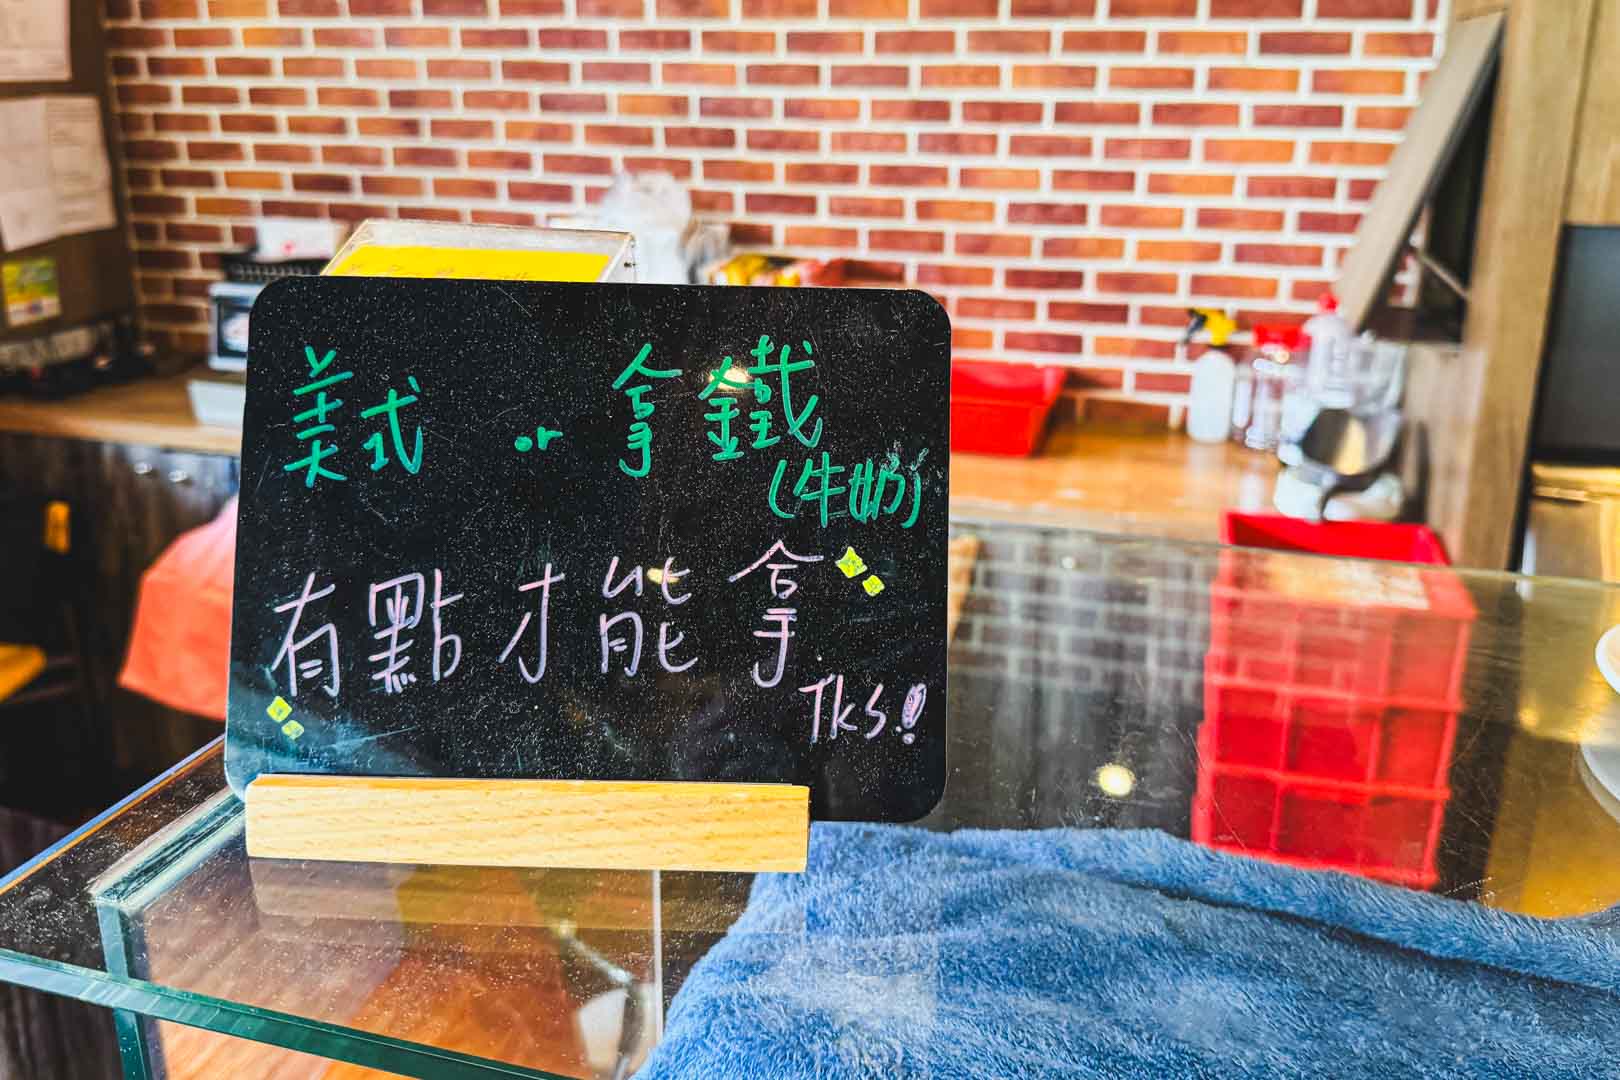 美式 or 拿鐵
(牛奶)
有點才能拿
Tks!